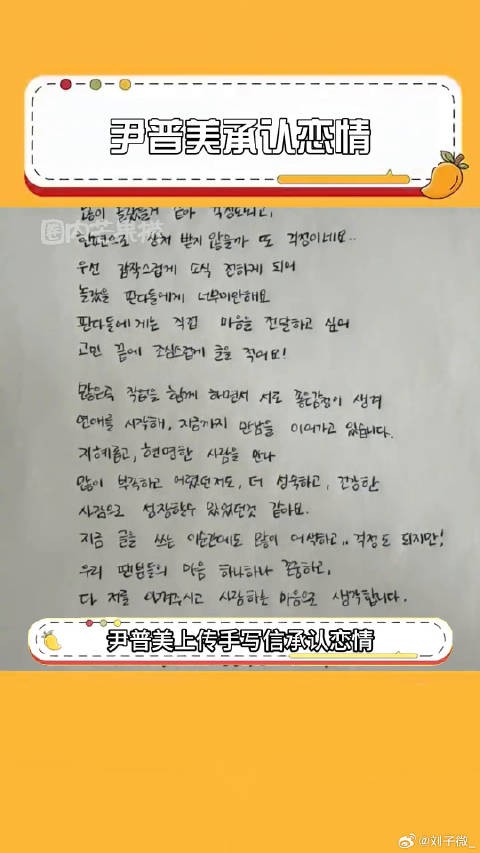 尹普美承认恋情
많이 놀랐을거 같아 걱정되고,
한편으로 상처 받지 않을까 또 걱정이네요..
우선 갑작스럽게 소식 전하게 되어
놀랐을 판다들에게 너무미안해요
판다들에게는 직접 마음을 전달하고 싶어
고민 끝에 조심스럽게 글을 적어요!
많은곡 작업을 함께 하면서 서로 좋은감정이 생겨
연애를 시작해, 지금까지 만남을 이어가고 있습니다.
지혜롭고, 현명한 사람을 만나
많이 부족하고 어렸던저도, 더 성숙하고, 건강한
사람으로 성장할수 있었던것 같아요.
지금 글을 쓰는 이순간에도 많이 어색하고.. 걱정도 되지만!
우리 팬분들의 마음 하나하나 존중하고,
다 저를 아껴주시고 사랑하는 마음으로 생각합니다.
尹普美上传手写信承认恋情
圈内芒果捞
@刘子微_